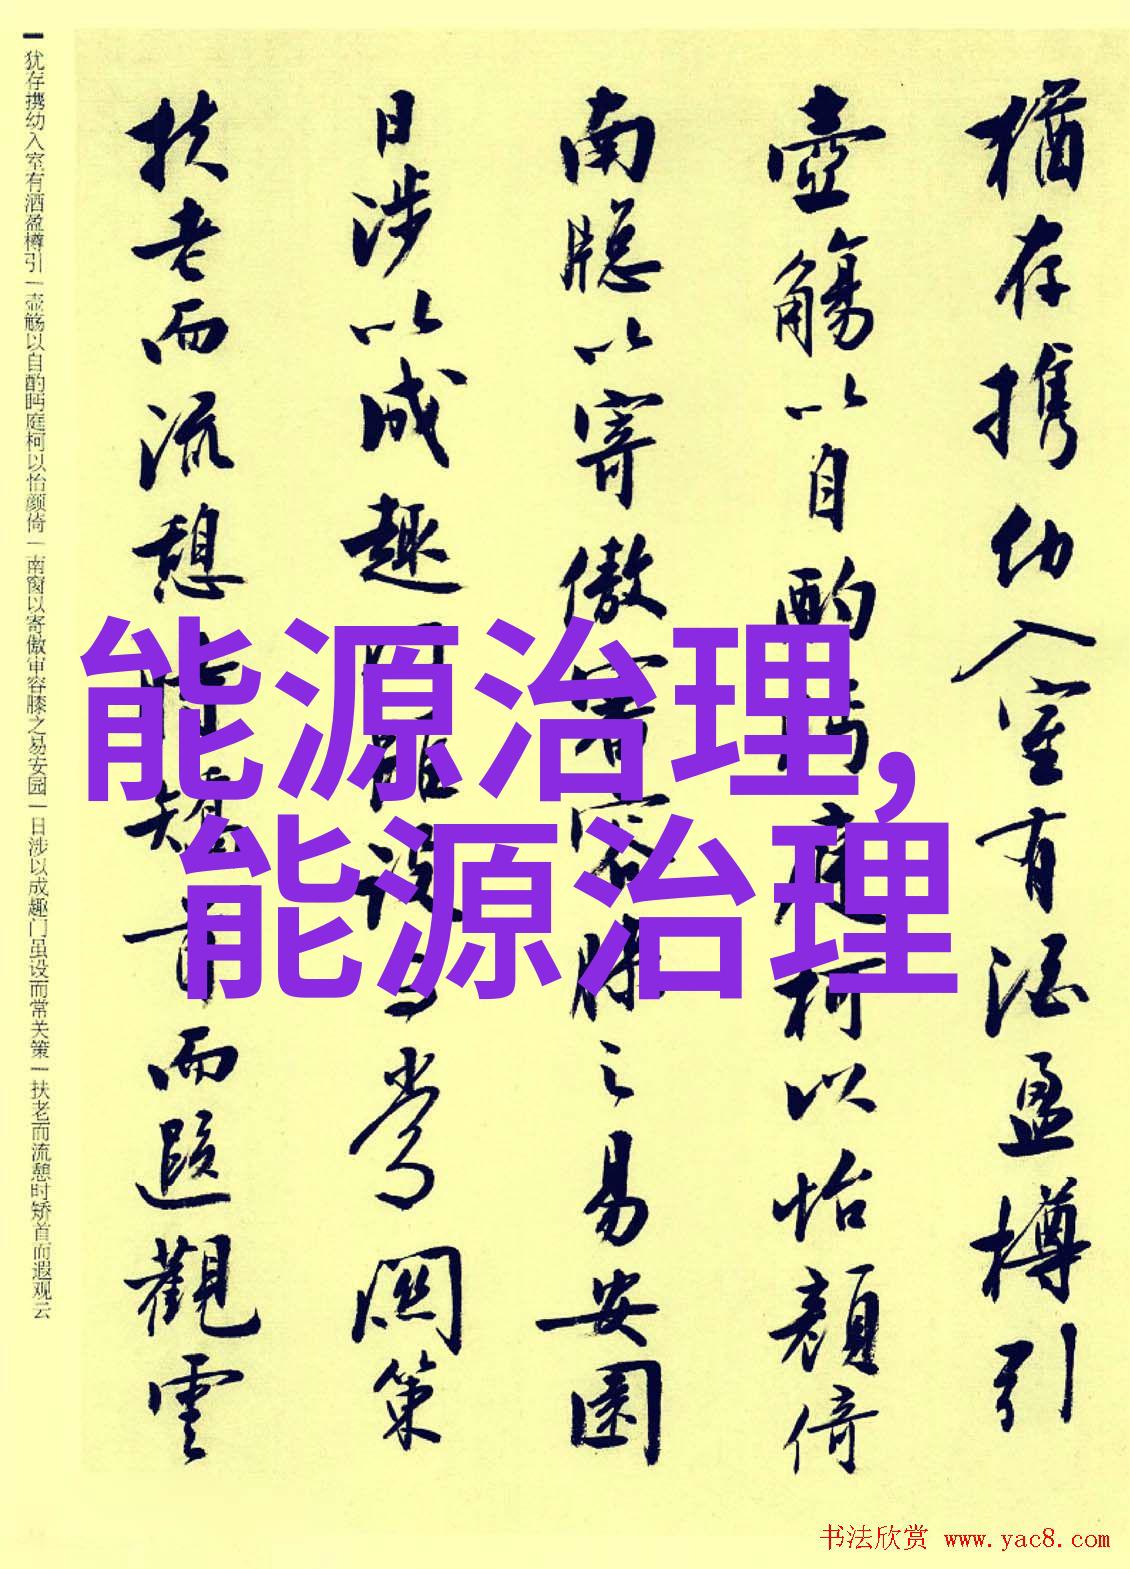 猶存携幼入室有酒盈樽引
壺觴以自酌眄庭柯以怡顔倚
南牕以寄傲審容膝之易安園
日涉以成趣門雖設而常関策
扶老而流憩時矯首而遐觀雲
犹存携幼入室有酒盈樽引
壶觞以自酌眄庭柯以怡颜倚
南窗以寄傲审容膝之易安园
日涉以成趣门虽设而常关策
扶老而流憩时矫首而遐观云
能源治理,
能源治理
书法欣赏 www.yac8.com